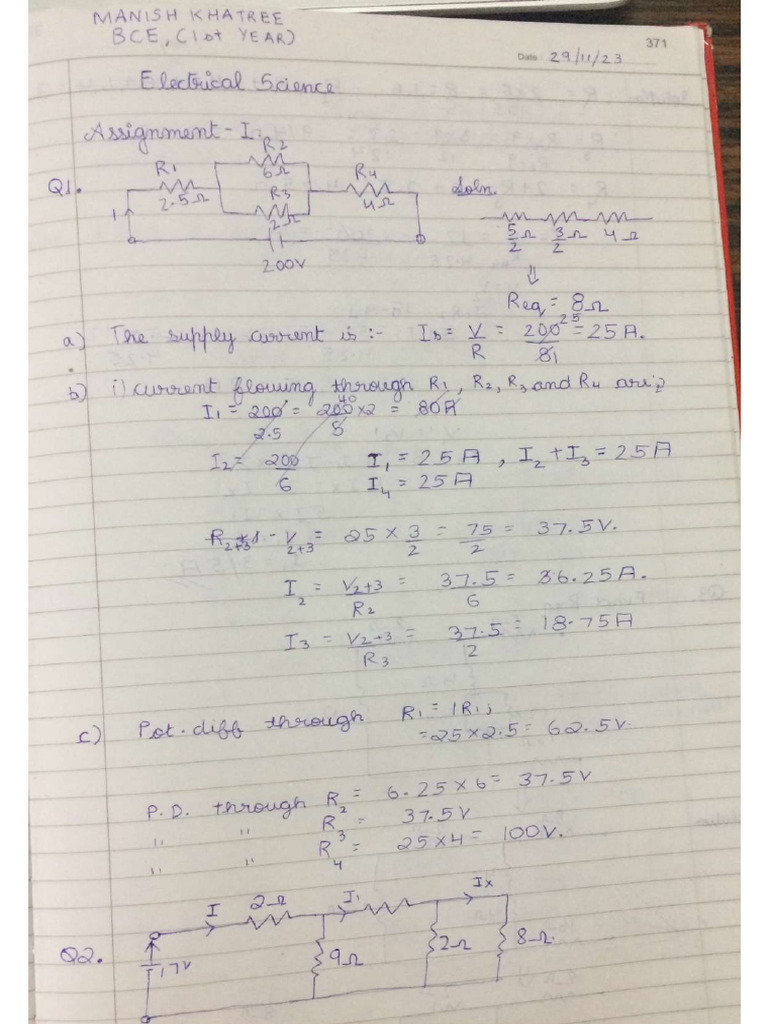 MANISH KHATREE
BCE, (1st YEAR)
371
Date: 29/11/23
Electrical Science
Assignment - I:
Q1.
R1
2.5Ω
R2
6Ω
R3
2Ω
R4
4Ω
I
200V
Soln.
5/2 Ω 3/2 Ω 4Ω
⇓
Req = 8Ω
a) The supply current is :- Is = V/R = 200/8 = 25A.
25
1
b) i) current flowing through R1, R2, R3 and R4 are;
I1 = 200/2.5 = 200/5 ×2 = 80A
40
I2 = 200/6
I1 = 25A, I2 + I3 = 25A
I4 = 25A
V2+3 = 25 × 3/2 = 75/2 = 37.5V.
I2 = V2+3/R2 = 37.5/6 = 36.25A.
I3 = V2+3/R3 = 37.5/2 = 18.75A
c) Pot. diff through R1 = IR1;
= 25×2.5 = 62.5V.
P.D. through R2 = 6.25×6 = 37.5V
" " R3 = 37.5V
" " R4 = 25×4 = 100V.
Q2.
I
2Ω
I1
Ix
17V
9Ω
2Ω
8Ω.